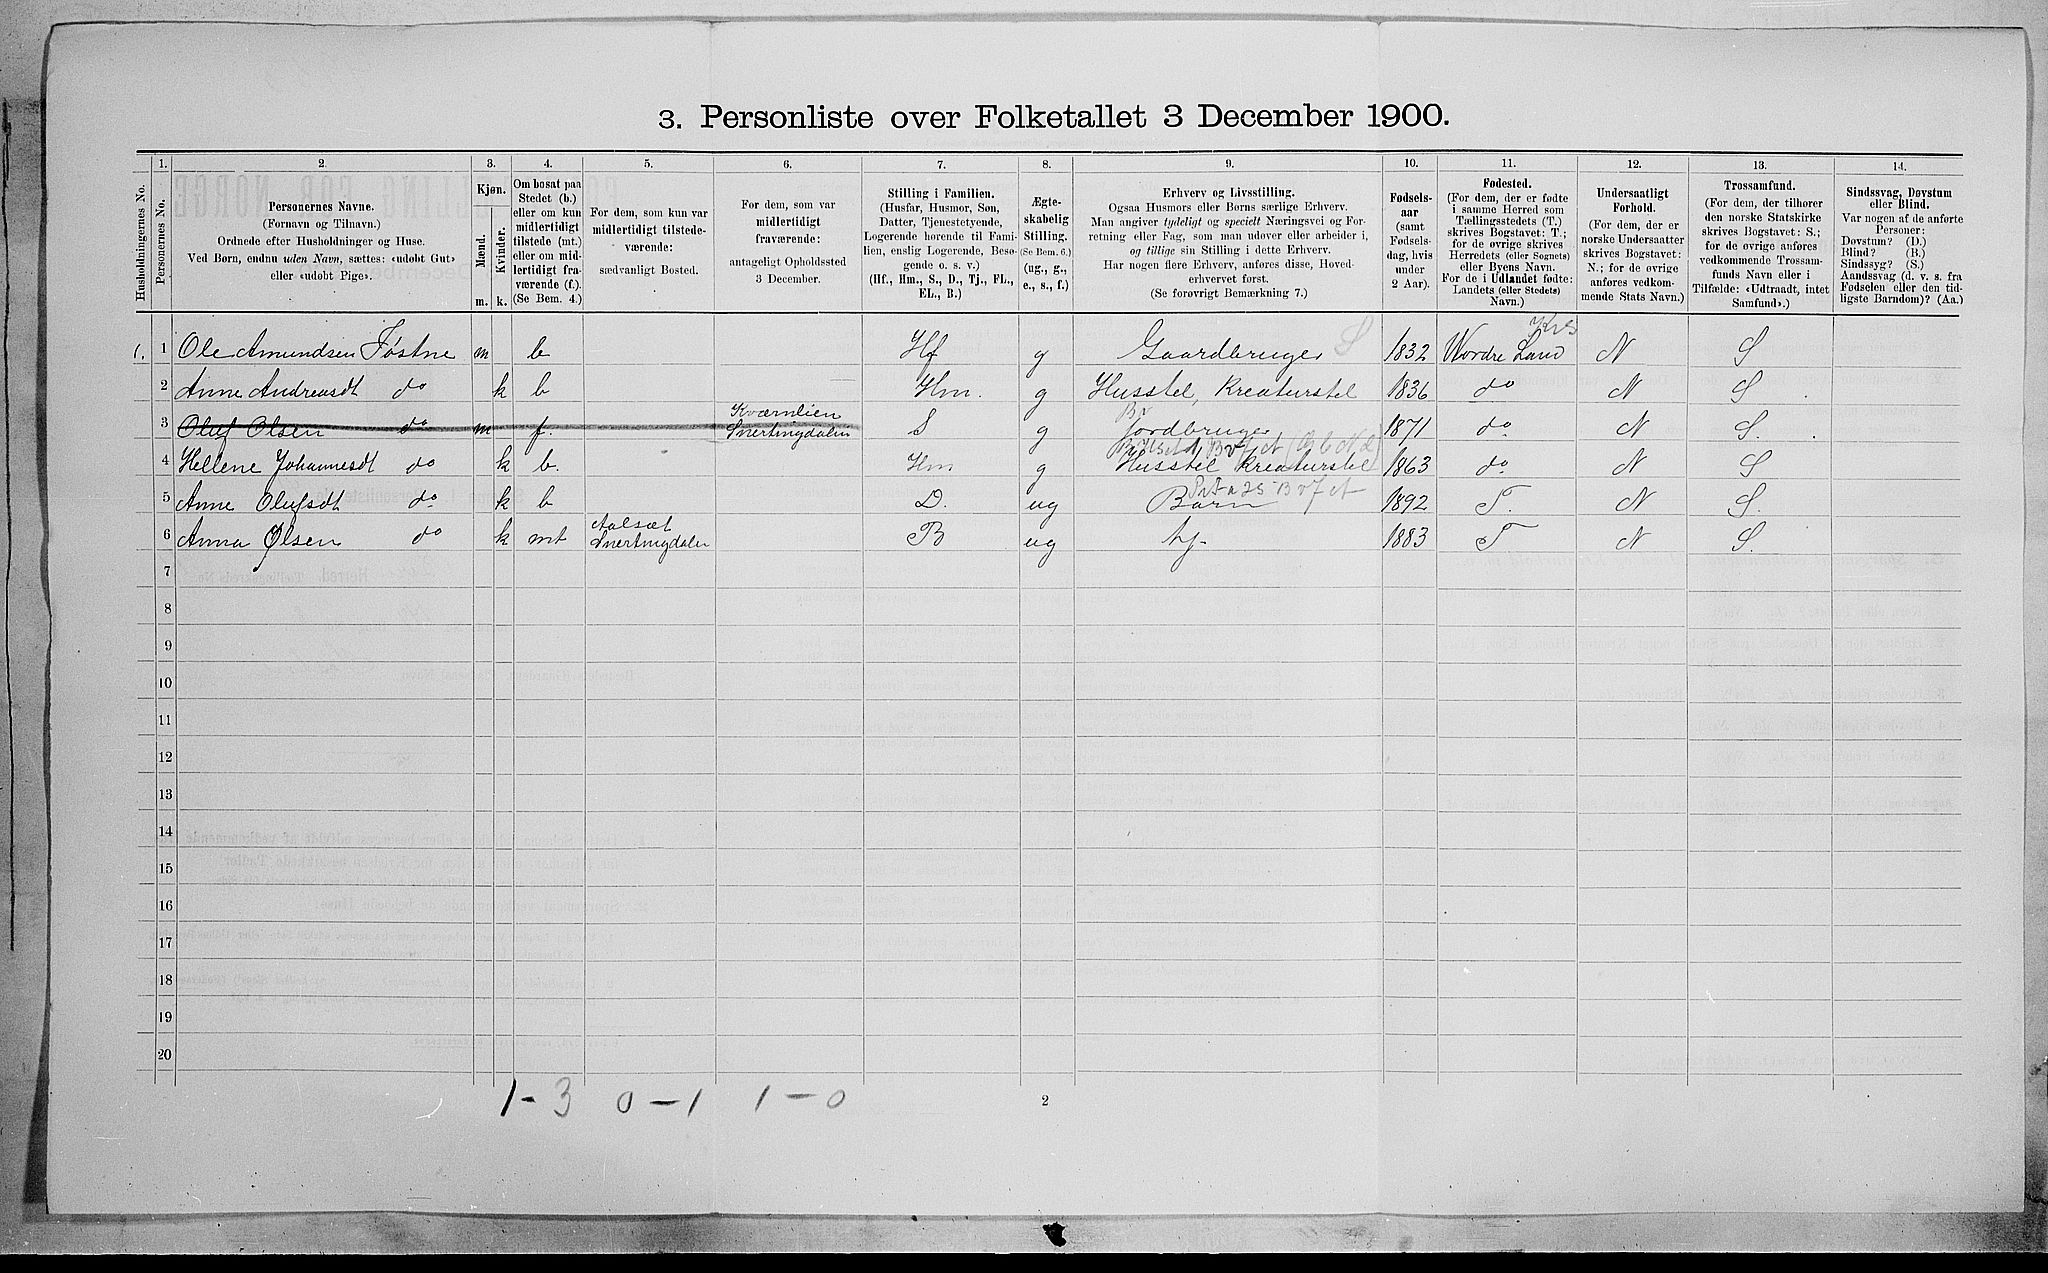 3. Personliste over Folketallet 3 December 1900.
1. 2. 3. 4. 5. 6. 7. 8. 9. 10. 11. 12. 13. 14.
Husholdningernes No.
Personernes No.
Personernes Navne.
(Fornavn og Tilnavn.)
Ordnede efter Husholdninger og Huse.
Ved Børn, endnu uden Navn, sættes: «udøbt Gut»
eller «udøbt Pige».
Kjøn.
Mænd.
Kvinder.
m. k.
Om bosat paa
Stedet (b.)
eller om kun
midlertidigt
tilstede (mt.)
eller om mid-
lertidigt fra-
værende (f.).
(Se Bem. 4.)
For dem, som kun var
midlertidigt tilstede-
værende:
sædvanligt Bosted.
For dem, som var
midlertidigt
fraværende:
antageligt Opholdssted
3 December.
Stilling i Familien.
(Husfar, Husmor, Søn,
Datter, Tjenestetyende,
Logerende hørende til Fami-
lien, enslig Logerende, Besø-
gende o. s. v.)
(Hf., Hm., S., D., Tj., FL.,
EL., B.)
Ægte-
skabelig
Stilling.
(Se Bem. 6.)
(ug., g.,
e., s., f.)
Erhverv og Livsstilling.
Ogsaa Husmors eller Børns særlige Erhverv.
Man angiver tydeligt og specielt Næringsvei og For-
retning eller Fag, som man udøver eller arbeider i,
og tillige sin Stilling i dette Erhverv.
Har nogen flere Erhverv, anføres disse, Hoved-
erhvervet først.
(Se forøvrigt Bemærkning 7.)
Fødsels-
aar
(samt
Fødsels-
dag, hvis
under
2 Aar).
Fødested.
(For dem, der er fødte
i samme Herred som
Tællingsstedets (T.)
skrives Bogstavet: T.;
for de øvrige skrives
Herredets (eller Sognets)
eller Byens Navn.
For de i Udlandet fødte:
Landets (eller Stedets)
Navn.)
Undersaatligt
Forhold.
(For dem, der er
norske Undersaatter
skrives Bogstavet:
N.; for de øvrige
anføres vedkom-
mende Stats Navn.)
Trossamfund.
(For dem, der tilhører
den norske Statskirke
skrives Bogstavet: S.;
for de øvrige anføres
vedkommende Trossam-
funds Navn eller i
Tilfælde: «Udtraadt, intet
Samfund».)
Sindssvag, Døvstum
eller Blind.
Var nogen af de anførte
Personer:
Døvstum? (D.)
Blind? (B.)
Sindssyg? (S.)
Aandssvag (d. v. s. fra
Fødselen eller den tid-
ligste Barndom)? (Aa.)
1. 1 Ole Amundsen Tøstne m b Hf g Gaardbruger S 1832 Nordre Land N S
2 Anne Andreasdt do k b Hm. g Husstel, Kreaturstel 1836 do N S
Kværnlien
3 Oluf Olsen do m f. Snertingdalen S g Jordbruger 1871 do N S.
4 Hellene Johannesdt do k b. Hm g Husstel Kreaturstel 1863 do N S
5 Anne Olufsdt do k b D. ug Barn 1892 T. N S.
6 Anna Olsen do k mt Snertingdalen B ug tj. 1883 T N S.
7
8
9
10
11
12
13
14
15
16
17
18
19
20
1-3 0-1 1-0
2